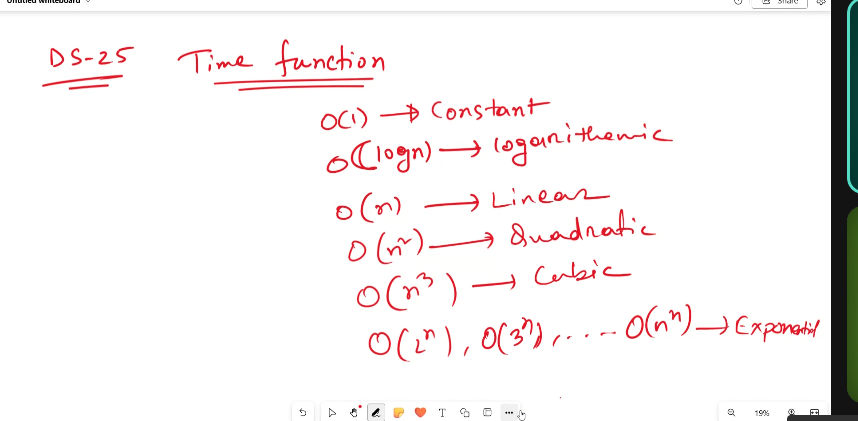 Untitled whiteboard
Share
DS-25 Time function
O(1) → Constant
O(logn) → logarithemic
O(n) → Linear
O(n²) → Quadratic
O(n³) → Cubic
O(2ⁿ), O(3ⁿ), .... O(nⁿ) → Exponential
T
19%